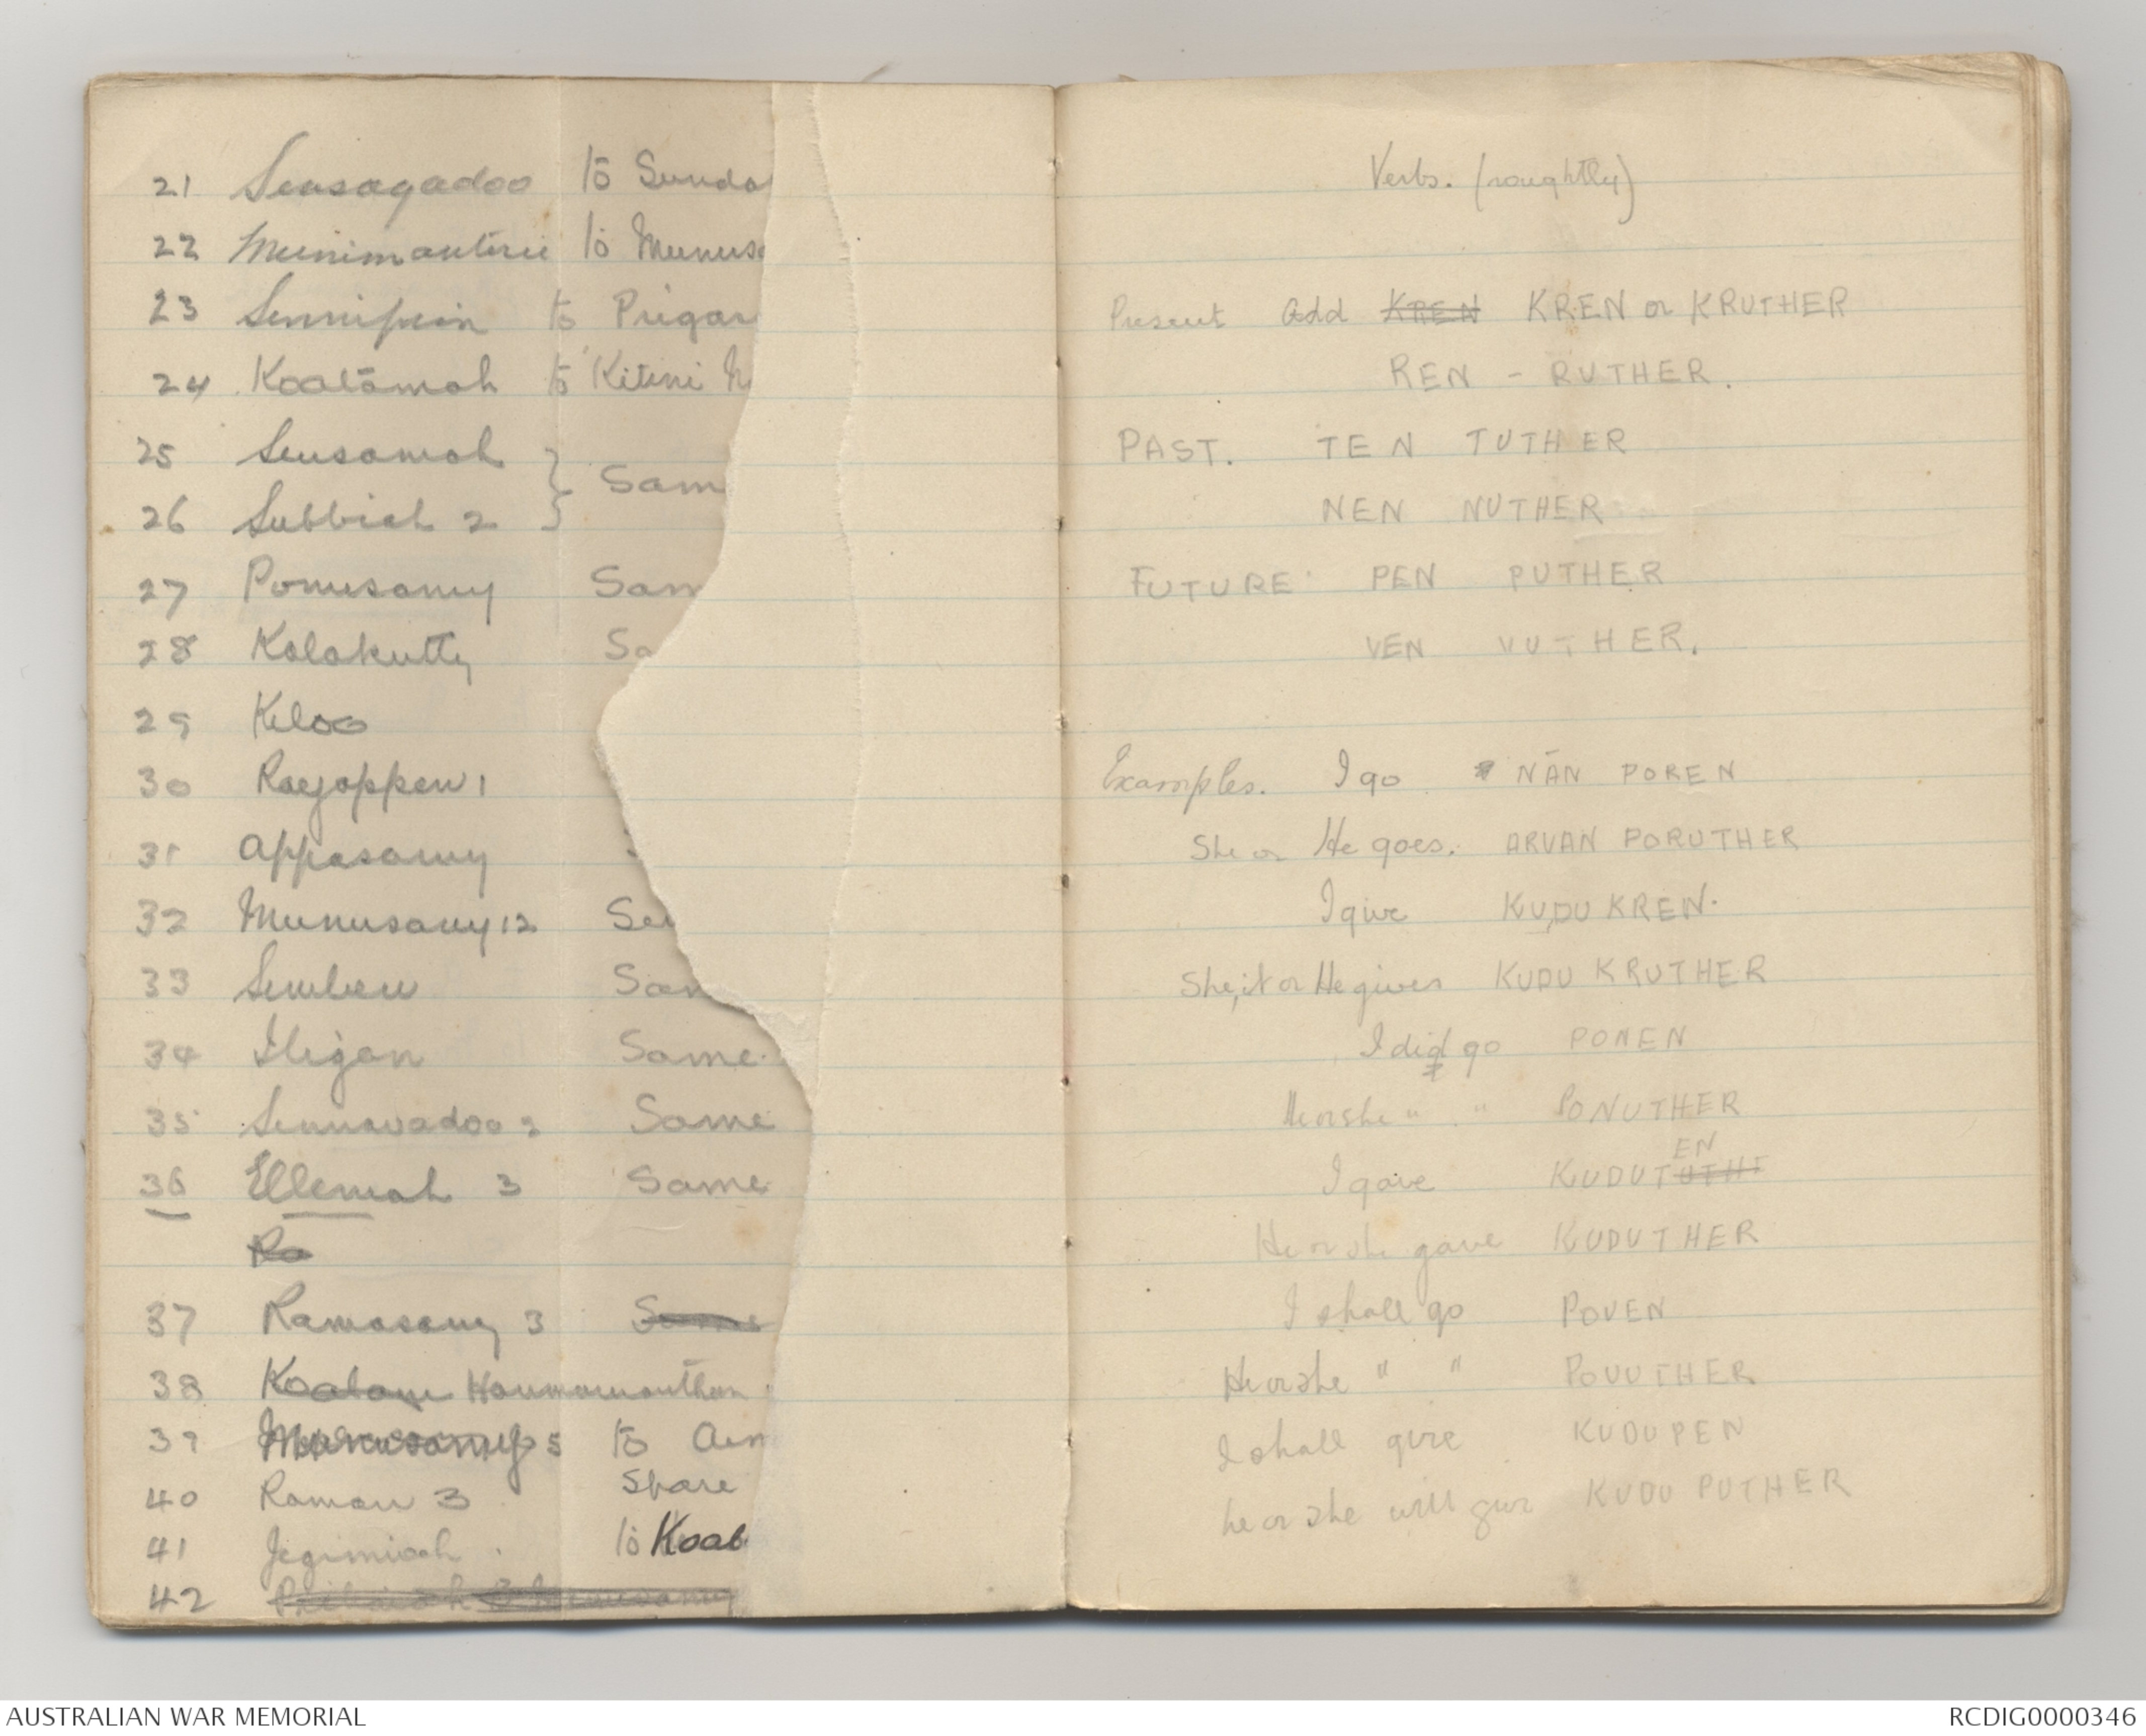 21 Sensagadoo to Sunda
22 to Munus
23 to Prigar
24 Koatamah to Kitini
25 Sensamah
Sam
26 Subbiah 2
27 Ponusamy Sam
28 Kolakutty Sa
29 Keloo
30 Raejappen 1
31 Appasamy S
32 Munusamy 12
33 Simben Sam
34 Iligan Same
35 Sennavadoo 2 Same
36 Ellemah 3 Same
Ra
37 Ramasamy 3 Same
38
39 Munusamy 5 to
40 Raman 3 Share
41 Jegimiah to Koat
42
Verbs. (roughtly)
Present Add KREN KREN or KRUTHER
REN - RUTHER.
PAST. TEN TUTHER
NEN NUTHER
FUTURE PEN PUTHER
VEN VUTHER.
Examples. I go NĀN POREN
She or He goes. ARVAN PORUTHER
I give KUDU KREN.
She, it or He gives KUDU KRUTHER
I did go PONEN
He or she " " PONUTHER
EN
I gave KUDUTUTHE
He or she gave KUDUTHER
I shall go POVEN
He or she " " POVUTHER
I shall give KUDUPEN
he or she will give KUDU PUTHER
AUSTRALIAN WAR MEMORIAL
RCDIG0000346